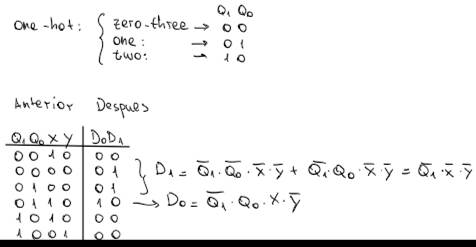 Q₁ Q₀
one-hot: { zero-three → 0 0
one: → 0 1
two: → 1 0
Anterior Despues
Q₁ Q₀ X Y | D₀ D₁
0 0 1 0 | 0 0
0 0 0 0 | 0 1
0 1 0 0 | 0 1
0 1 1 0 | 1 0
1 0 1 0 | 0 0
1 0 0 1 | 0 0
D₁ = Q̅₁·Q̅₀·x̅·y̅ + Q̅₁·Q₀·x̅·y̅ = Q̅₁·x̅·y̅
→ D₀ = Q̅₁·Q₀·X·Y̅